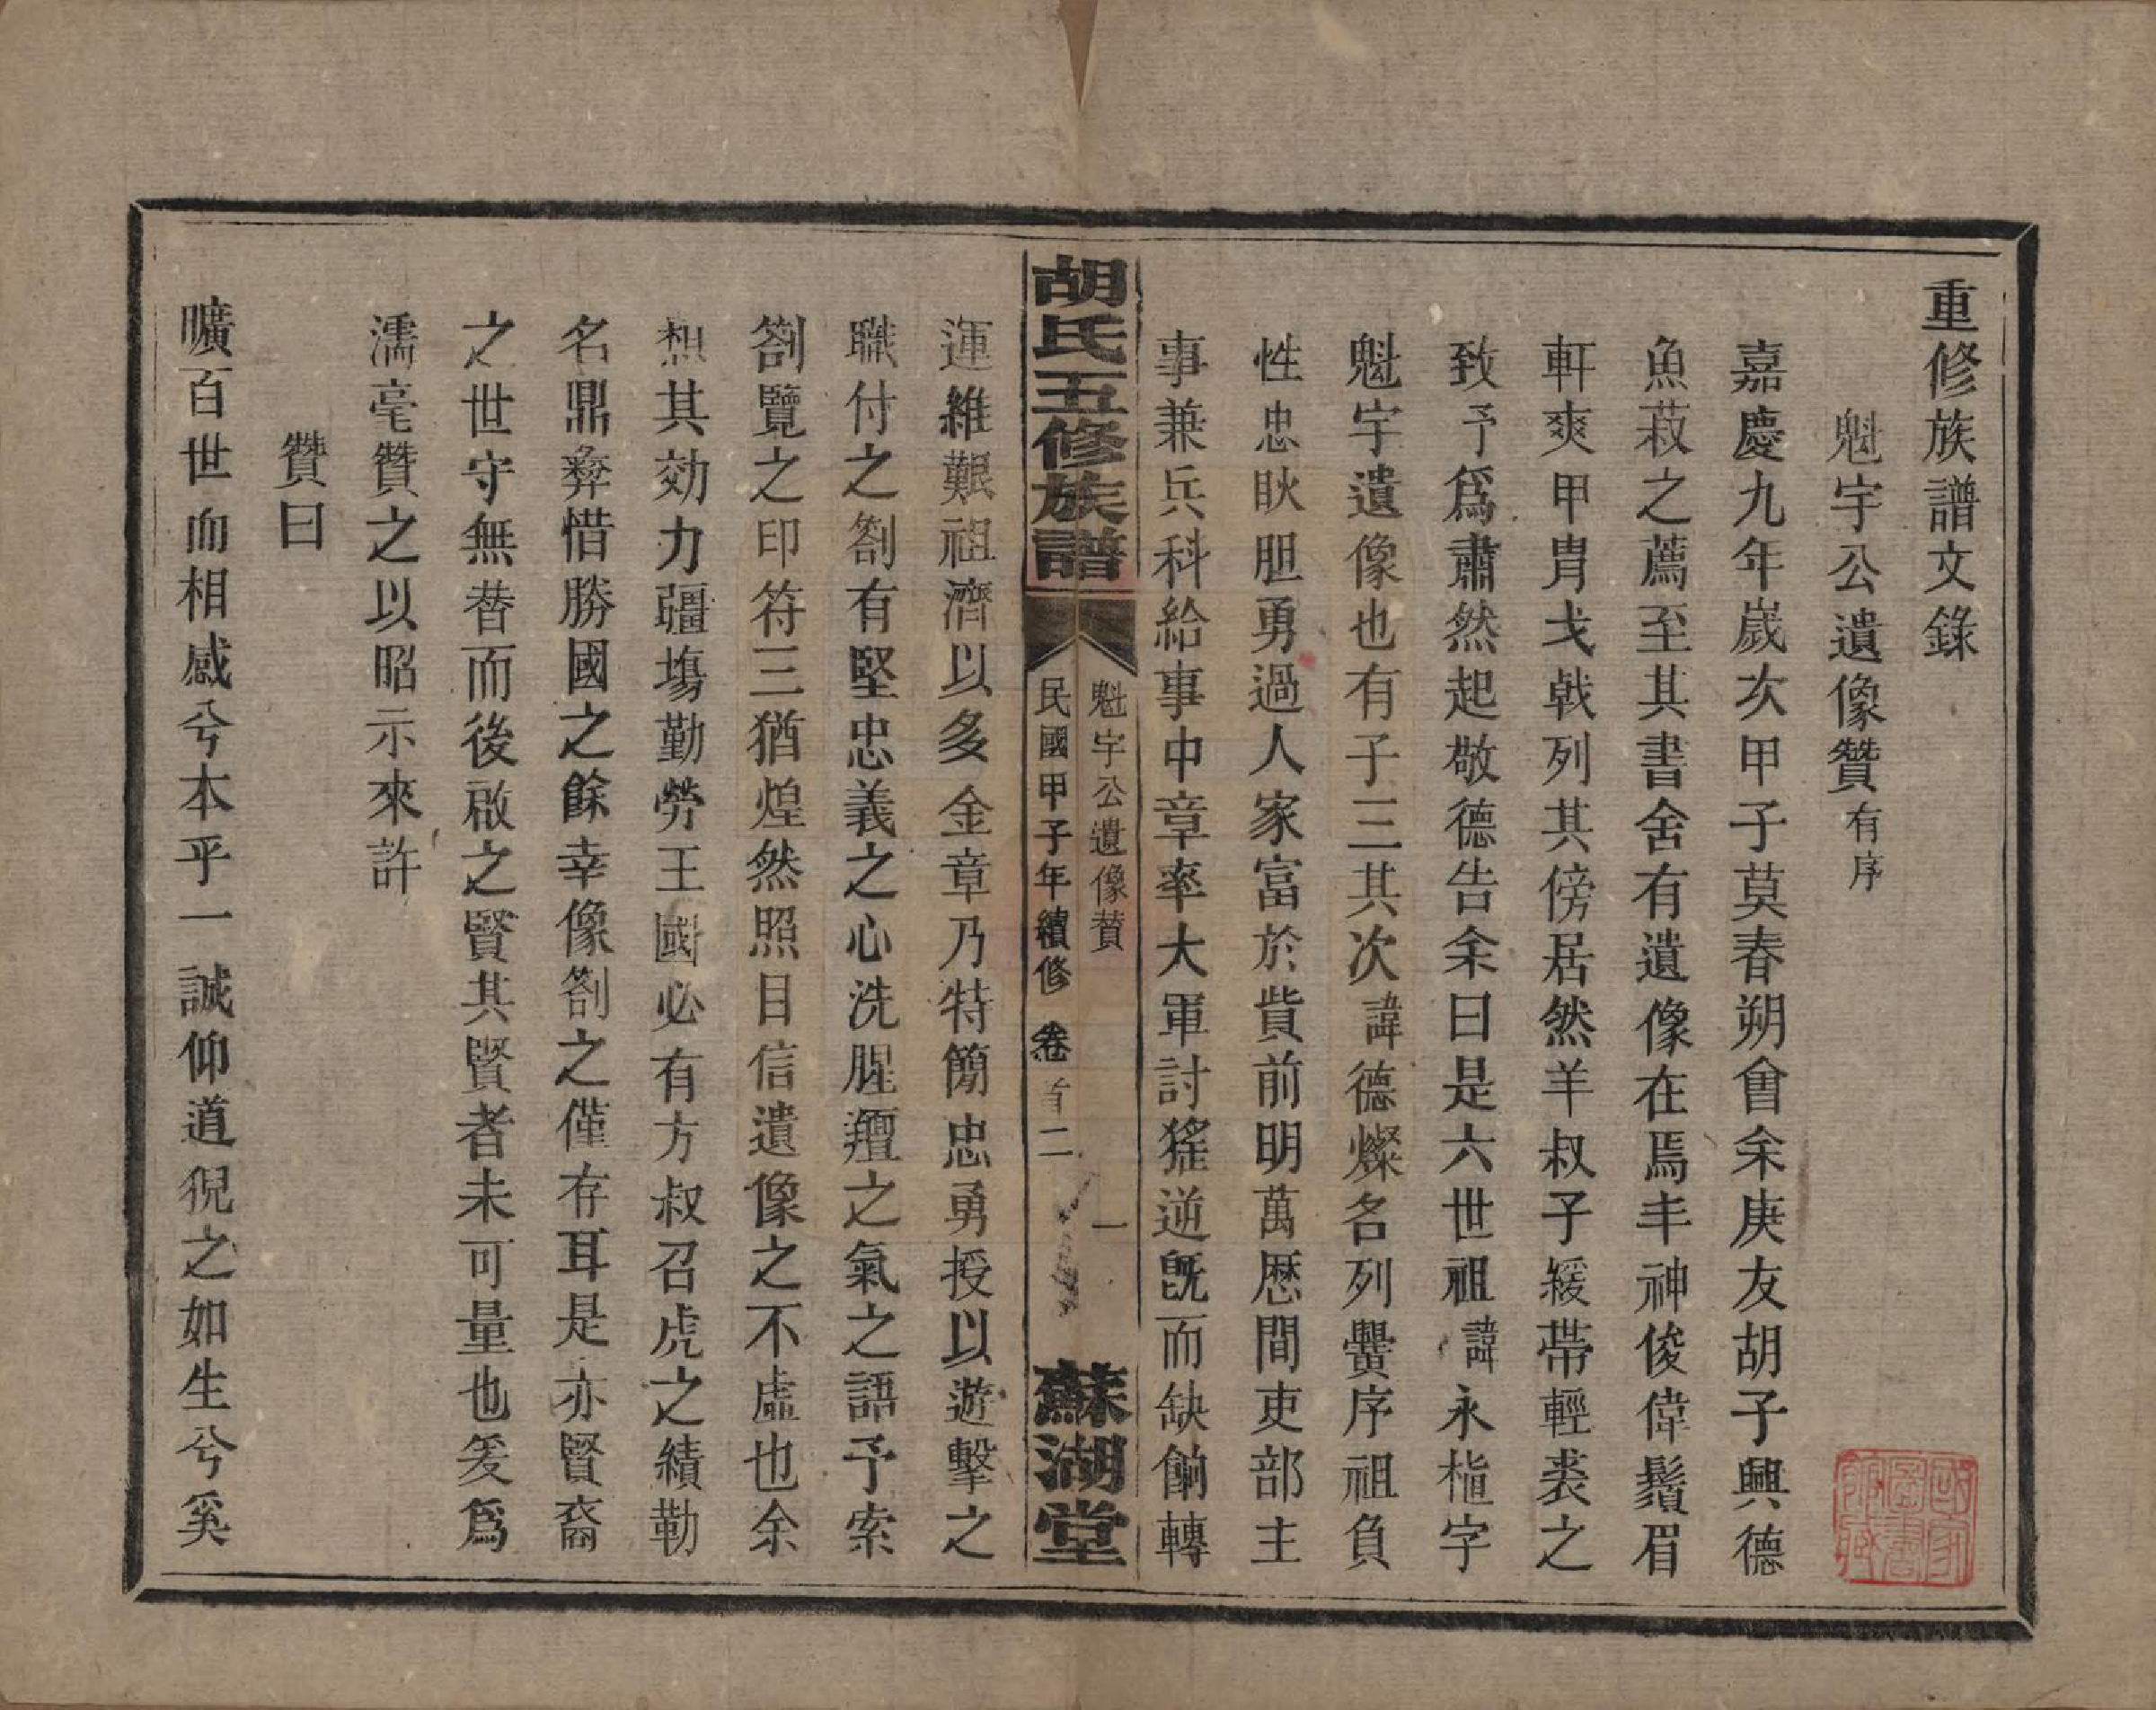 重修族譜文錄
魁宇公遺像贊有序
嘉慶九年歲次甲子莫春朔會余庚友胡子興德
魚菽之薦至其書舍有遺像在焉丰神俊偉鬚眉
軒爽甲胄戈戟列其傍居然羊叔子緩帶輕裘之
致予爲肅然起敬德告余曰是六世祖諱永楷字
魁宇遺像也有子三其次諱德燦名列黌序祖負
性忠耿胆勇過人家富於貲前明萬歷間吏部主
事兼兵科給事中章率大軍討猺逆旣而缺餉轉
胡氏五修族譜
魁宇公遺像贊
一
民國甲子年續修 卷首二
蘇湖堂
運維艱祖濟以多金章乃特簡忠勇授以遊擊之
職付之劄有堅忠義之心洗腥羶之氣之語予索
劄覽之印符三猶煌然照目信遺像之不虛也余
想其効力疆塲勤勞王國必有方叔召虎之績勒
名鼎彝惜勝國之餘幸像劄之僅存耳是亦賢裔
之世守無替而後啟之賢其賢者未可量也爰爲
濡毫贊之以昭示來許
贊曰
曠百世而相感兮本乎一誠仰道貌之如生兮奚